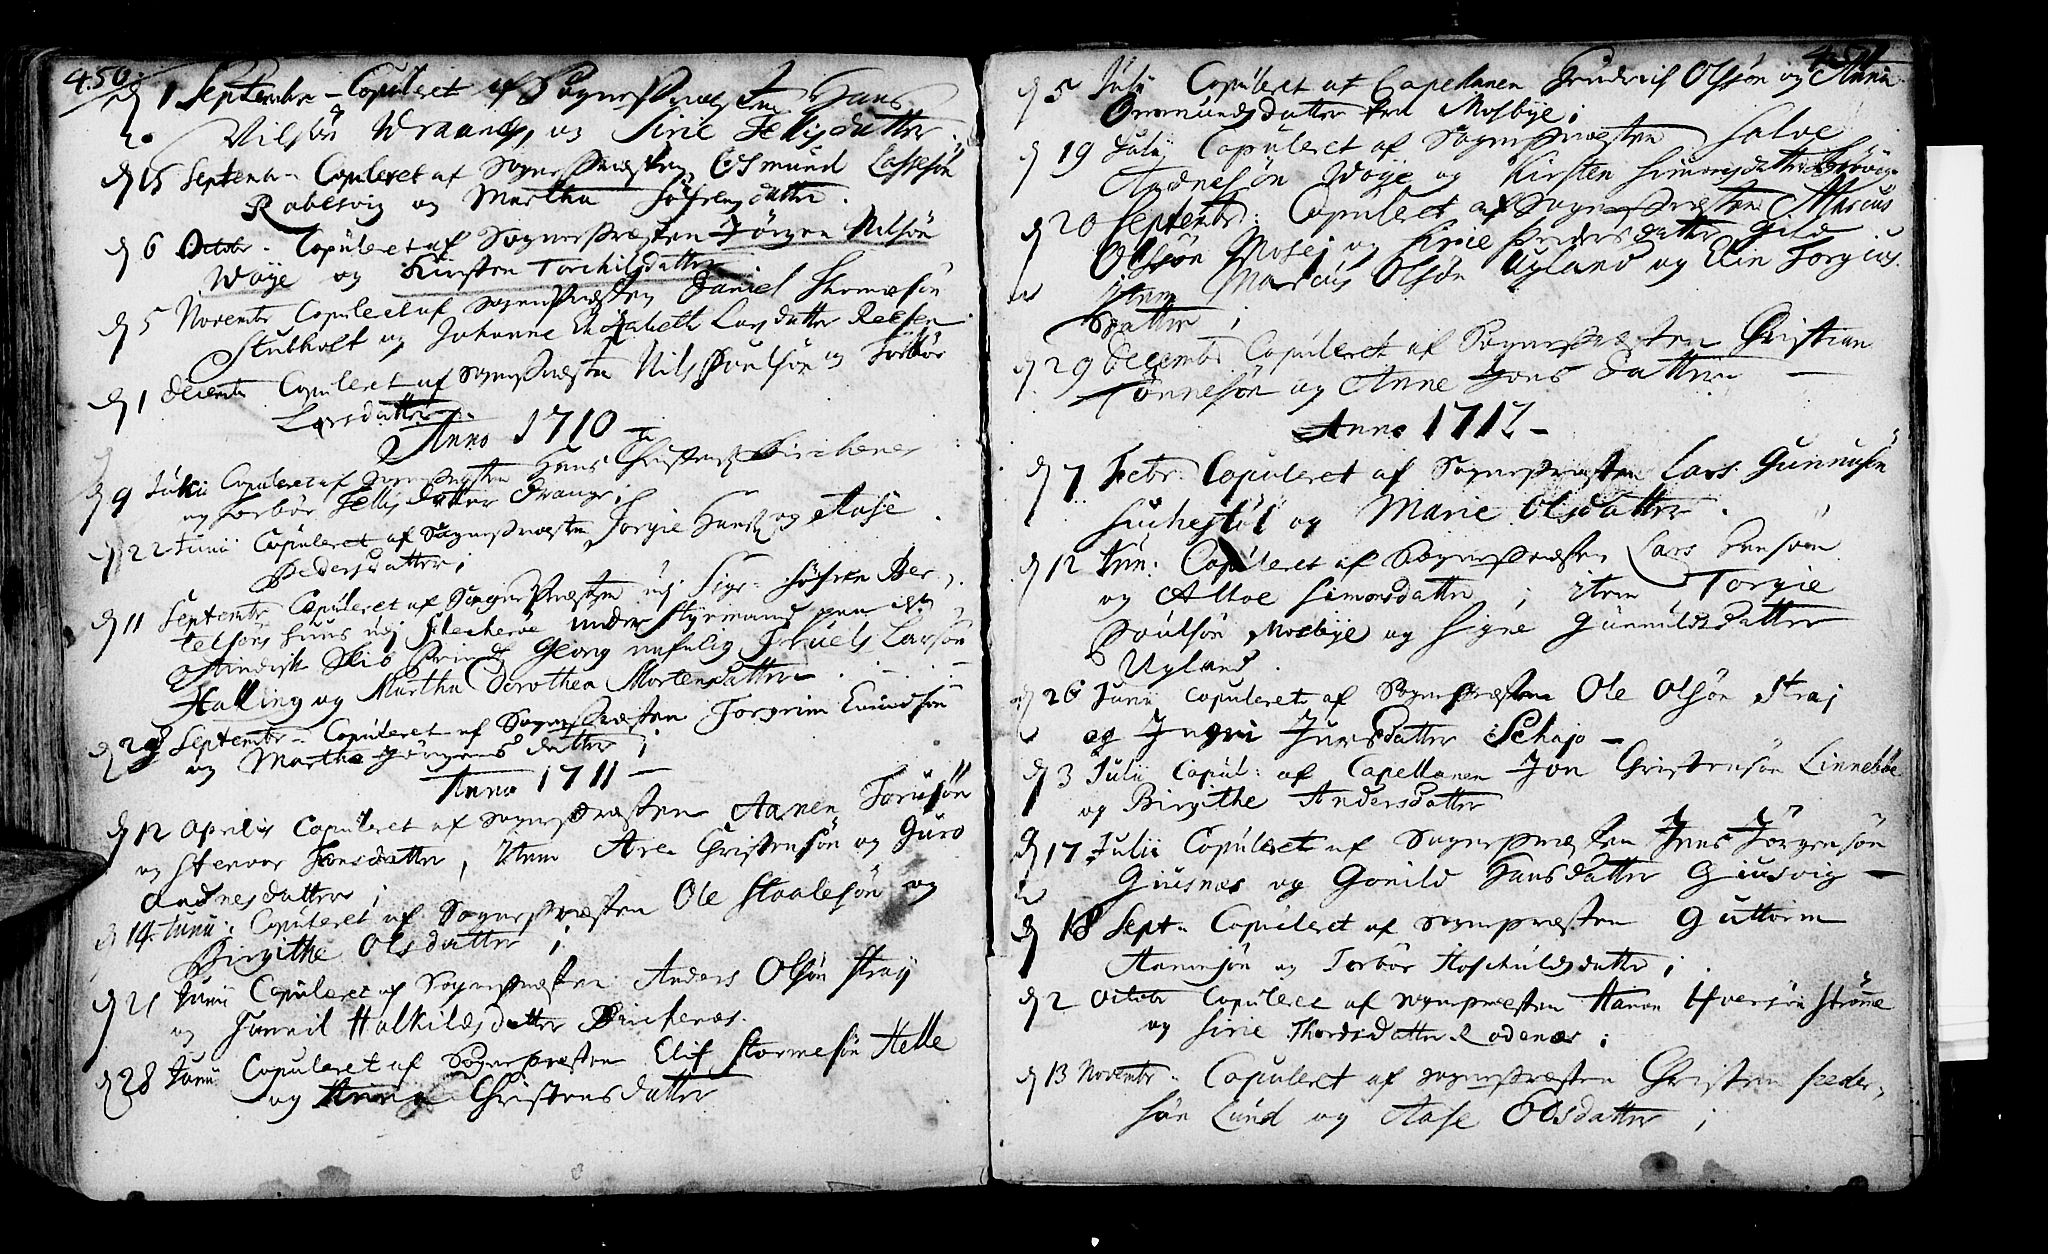 450.
d 1 Septembr. Copuleret af Sognepræsten Hans
Nilsön Wraanes og Sirie Jellisdatter.
d 15 Septembr. Copuleret af Sognepræsten Osmund Lassesön
Rabesvig og Martha Söfrensdatter.
d 6 Octobr. Copuleret af Sognepræsten Jörgen Nilsön
Wöye og Kirsten Torchilsdatter
d 5 Novembr Copuleret af Sognepræsten Daniel Thomesön
Stubholt og Johanne Elizabeth Larsdatter
d 1 Decembr Copuleret af Sognepræsten Nils Poulsön og Torbör
Larsdatter.
Anno 1710
d 9 Junii Copuleret af Sognepræsten Hans Christens. Kirchenes
og Torbör Jellisdatter Drange;
d 22 Junii Copuleret af Sognepræsten Jorgie Hans. og Aase
Pedersdatter;
d 11 Septembr. Copuleret af Sognepræsten udj Sigr. Söfren Ber-
telsens huus udj Fleckeröe under Styrmand paa
Skib Printz Georg nafnlig Truels Larsön
Halling og Martha Dorothea Mortensdatter.
d 29 Septembr. Copuleret af Sognepræsten Torgrim Eivindsön
og Martha Jörgensdatter;
Anno 1711
d 12 Aprilis Copuleret af Sognepræsten Aanen Torusön
og Stervor Jonsdatter, Item Are Christensön og Guro
Andnesdatter;
d 14 Junii. Copuleret af Sognepræsten Ole Staalesön og
Birgithe Olsdatter;
d 21 Junii Copuleret af Sognepræsten Anders Olsön Straj
og Gunnil Halkilsdatter Birchenæs.
d 28 Junii Copuleret af Sognepræsten Elif Stormesön Helle
og Anna Christensdatter
451
d 5 Julii Copuleret af Capellanen Hendrich Olsön og Anna
Ommundsdatter fra Mosbye;
d 19 Julii Copuleret af Sognepræsten Salve
Andnesön Wöye og Kirsten Simonsdatter
d 20 Septembr: Copuleret af Sognepræsten Marcus
Olssön Mosej og Sirie Pedersdatter Gild
Item Marcus Olsön Ugland og Elin Jorgius.
datter;
d 29 Decembr Copuleret af Sognepræsten Christian
Tönnesön og Anne Jonsdatter
Anno 1712
d 7 Febr. Copuleret af Sognepræsten Lars Gunnusön
Suchestöl og Marie Olsdatter.
d 12 Jun: Copuleret af Sognepræsten Lars Hansön
og Alloe Simonsdatter; item Torgie
Poulsön Mosbye og Signe Gunnuldsdatter
Ugland.
d 26 Junii Copuleret af Sognepræsten Ole Olsön Straj
og Ingri Jensdatter Schajo
d 3 Julii Copul: af Capellanen Jon Christensön Linneböe
og Birgithe Andersdatter
d 17 Julii Copuleret af Sognepræsten Jens Jörgensön
Giusnæs og Gonild Hansdatter Giusvig
d 18 Sept. Copuleret af Sognepræsten Guttorm
Aanensön og Torbör Aaschuldsdatter;
d 2 Octobr Copuleret af Sognepræsten Aanen Ifversön Strömme
og Sirie Thordsdatter Rodenæs;
d 13 Novembr. Copuleret af Sognepræsten Christen Peder-
sön Lund og Aase Olsdatter;